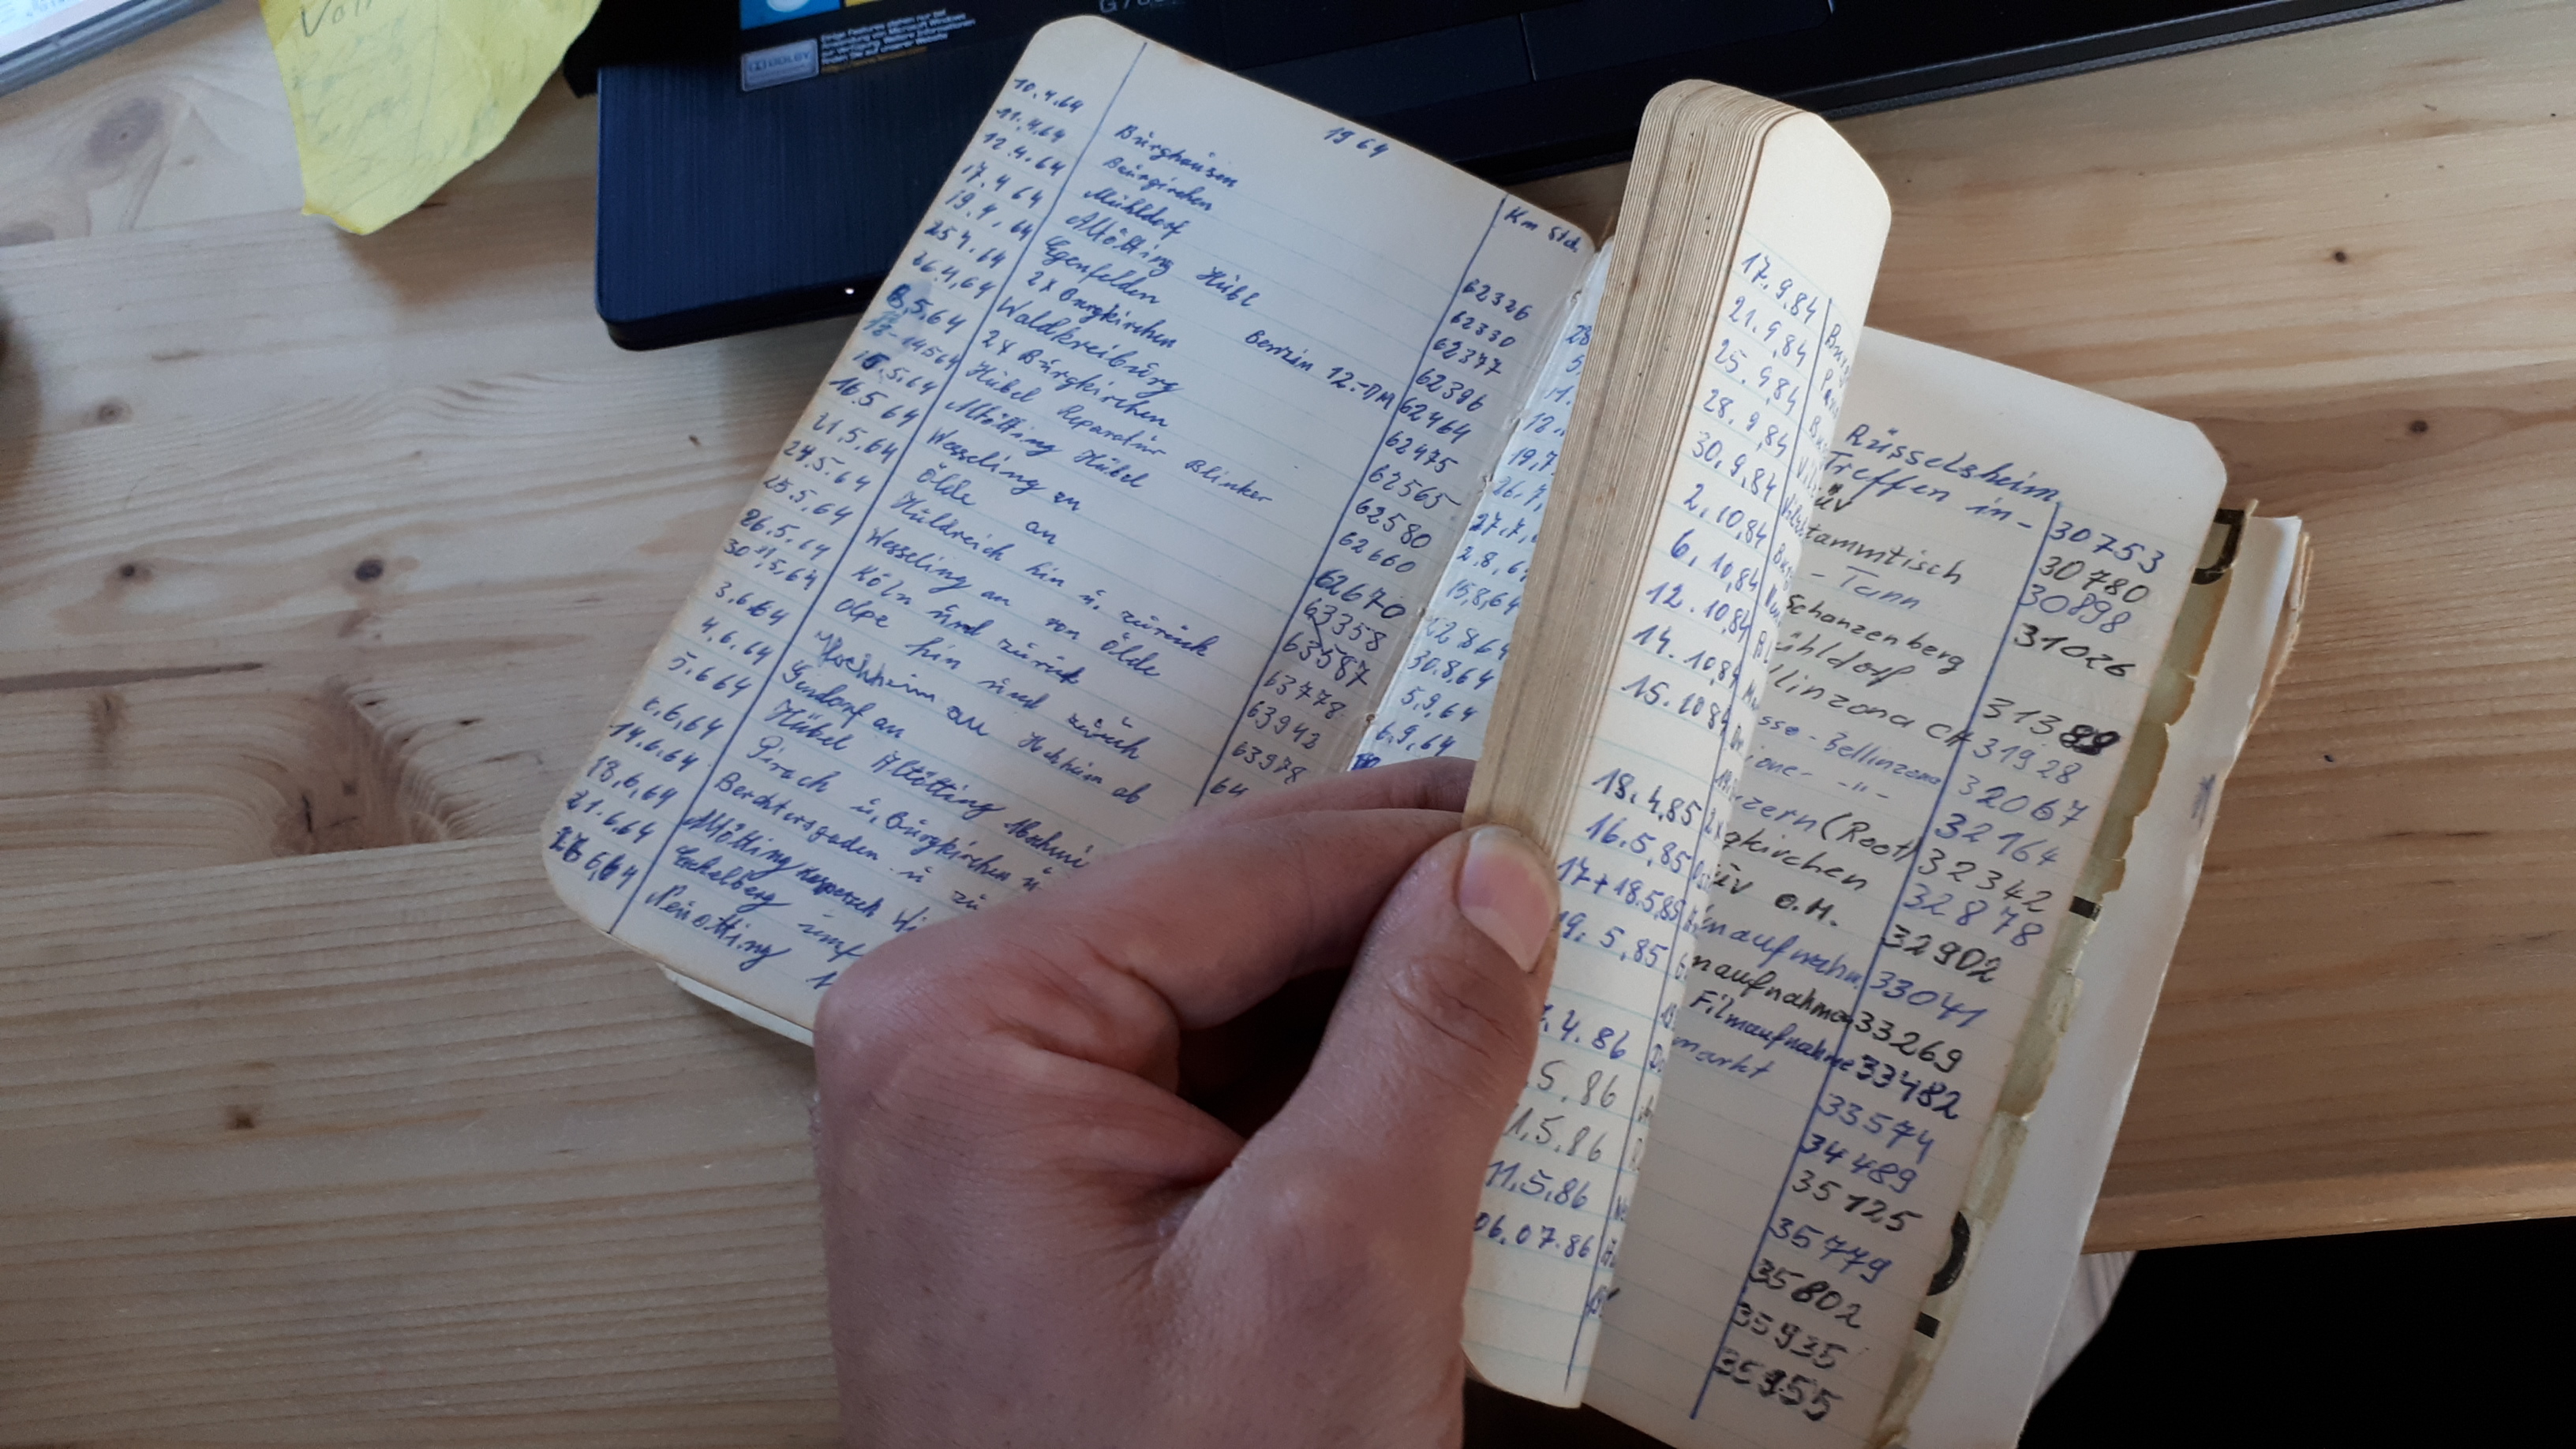 1964
Km Std.
10.4.64 Burghausen 62326
11.4.64 Burgirchen 62330
12.4.64 Mühldorf 62377
17.4.64 Altötting Hübl 62396
19.4.64 Egenfelden Benzin 12.-DM 62464
25.4.64 2x Burgkirchen 62475
26.4.64 Waldkreiburg 62565
8.5.64 2x Burgkirchen 62580
12-14.5.64 Hübel Reparatur Blinker 62660
15.5.64 Altötting Hübel 62670
16.5.64 Wesseling an 63358
21.5.64 Ölde an 63587
24.5.64 Huldreich hin u. zurück 63778
25.5.64 Wesseling an von Ölde 63942
26.5.64 Köln und zurück 63978
30.5.64 Olpe hin und zurück 64
3.6.64 Hochheim an Hochheim ab
4.6.64 Gindorf an
5.6.64 Hübel Altötting
6.6.64 Pirach u. Burgkirchen u
14.6.64 Berchtesgaden u zu
18.6.64 Altötting
21.6.64
26.6.64 Neuötting
19.7
26.7.
27.7.
2.8.6
15.8.64
22.8.64
30.8.64
5.9.64
6.9.64
17.9.84
21.9.84
25.9.84
28.9.84
30.9.84
2.10.84
6.10.84
12.10.84
14.10.84
15.10.84
18.4.85 2x
16.5.85
17+18.5.85
19.5.85
.4.86
.5.86
1.5.86
11.5.86
06.07.86
Rüsselsheim
Treffen in- 30753
üv 30780
tammtisch 30898
- Tann 31026
Schanzenberg
ühldorf 31388
llinzona CH 31928
sse-Bellinzona 32067
ione- -"- 32164
zern (Root) 32342
gkirchen 32878
üv o.M. 32902
maufnahm. 33041
maufnahmen 33269
Filmaufnahme 33482
markt 33574
34489
35125
35779
35802
35935
35955
DOLBY